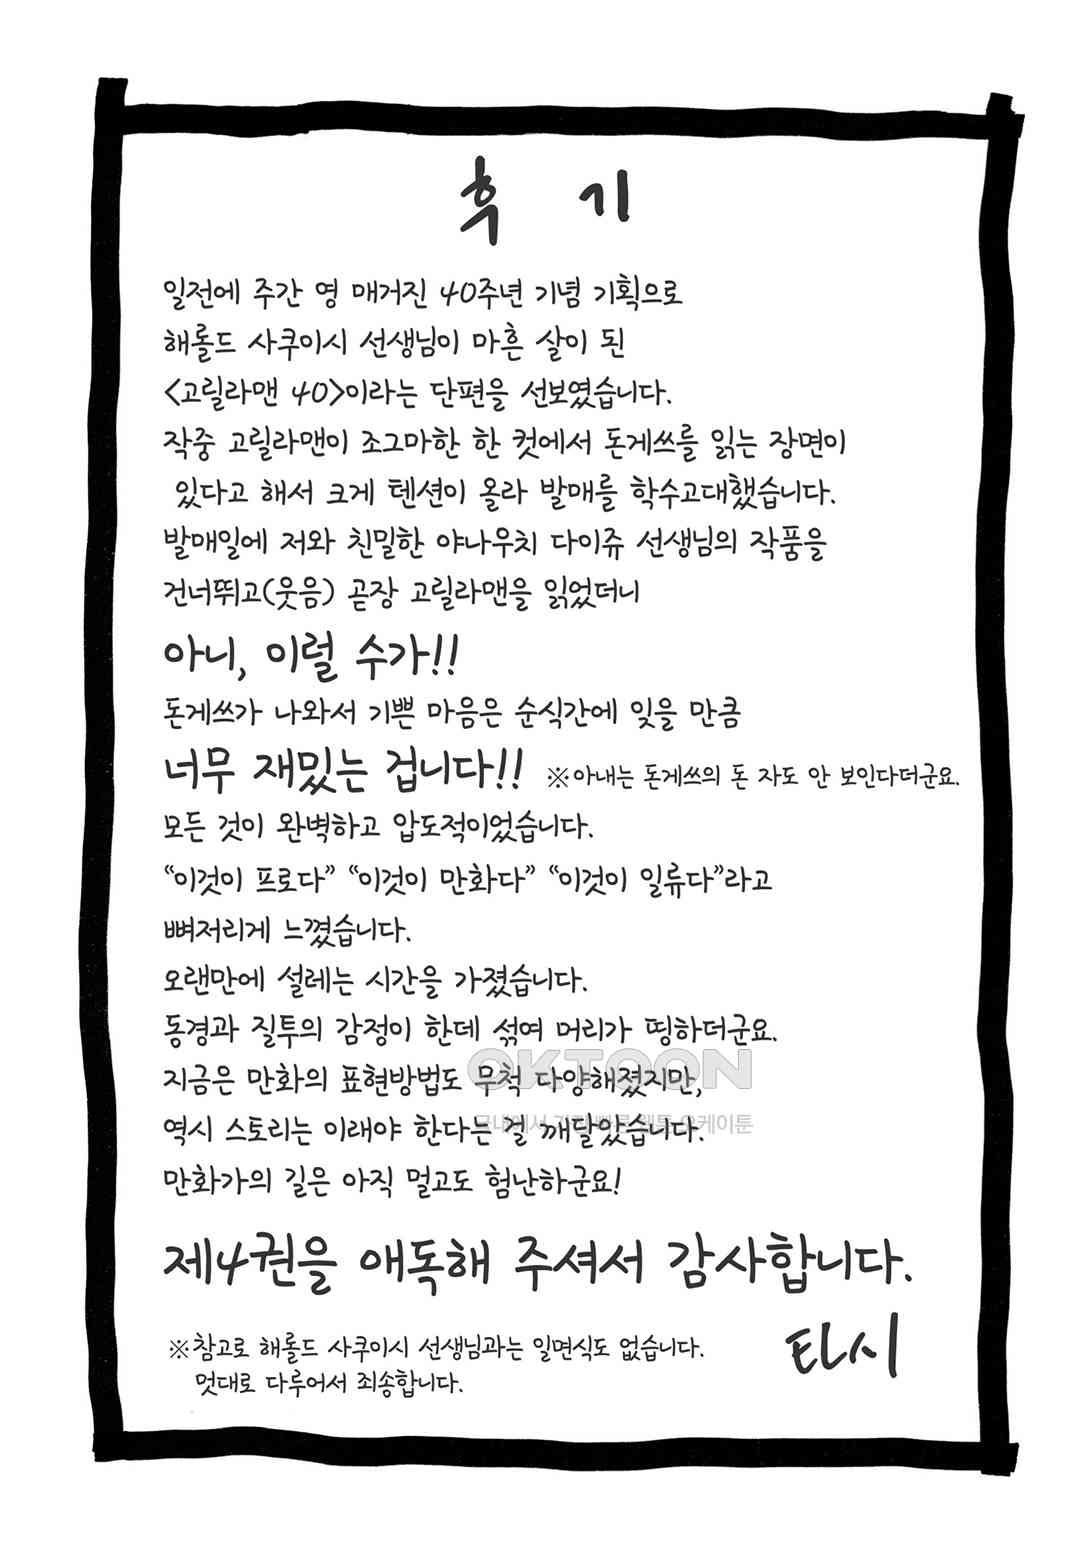 후 기
일전에 주간 영 매거진 40주년 기념 기획으로
해롤드 사쿠이시 선생님이 마흔 살이 된
<고릴라맨 40>이라는 단편을 선보였습니다.
작중 고릴라맨이 조그마한 한 컷에서 돈게쓰를 읽는 장면이
있다고 해서 크게 텐션이 올라 발매를 학수고대했습니다.
발매일에 저와 친밀한 야나우치 다이쥬 선생님의 작품을
건너뛰고(웃음) 곧장 고릴라맨을 읽었더니
아니, 이럴 수가!!
돈게쓰가 나와서 기쁜 마음은 순식간에 잊을 만큼
너무 재밌는 겁니다!! ※아내는 돈게쓰의 돈 자도 안 보인다더군요.
모든 것이 완벽하고 압도적이었습니다.
“이것이 프로다” “이것이 만화다” “이것이 일류다”라고
뼈저리게 느꼈습니다.
오랜만에 설레는 시간을 가졌습니다.
동경과 질투의 감정이 한데 섞여 머리가 띵하더군요.
지금은 만화의 표현방법도 무척 다양해졌지만,
OKTOON
역시 스토리는 이래야 한다는 걸 깨달았습니다.
국내에서 가장 빠른 웹툰 오케이툰
만화가의 길은 아직 멀고도 험난하군요!
제4권을 애독해 주셔서 감사합니다.
타시
※참고로 해롤드 사쿠이시 선생님과는 일면식도 없습니다.
멋대로 다루어서 죄송합니다.